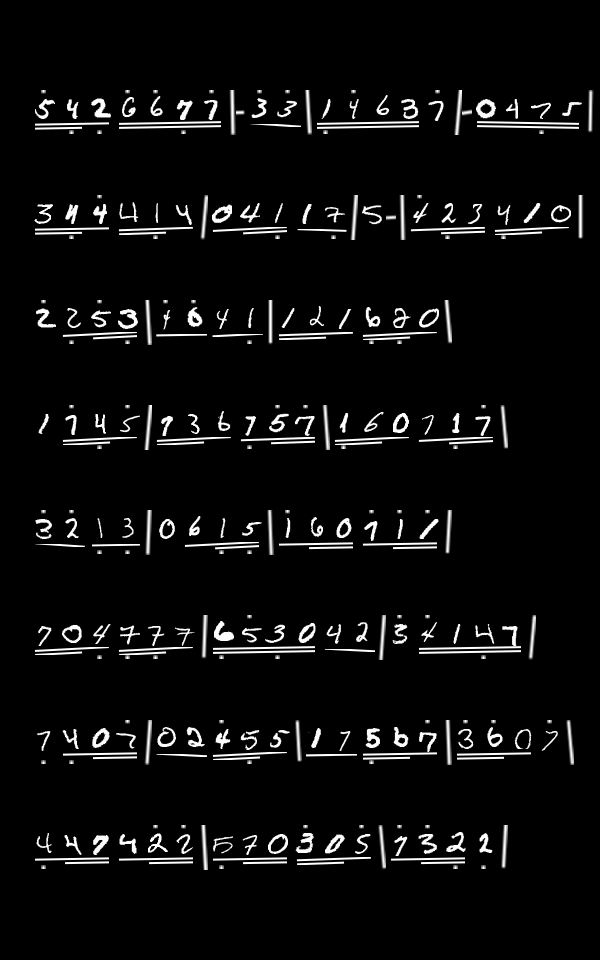 5426677|-33|14637|-0475|
344414|04117|5-|423410|
2253|1641|121620|
1745|736757|160717|
3213|0615|160717|
704777|653042|34147|
7407|02455|17567|3607|
447422|570305|7322|